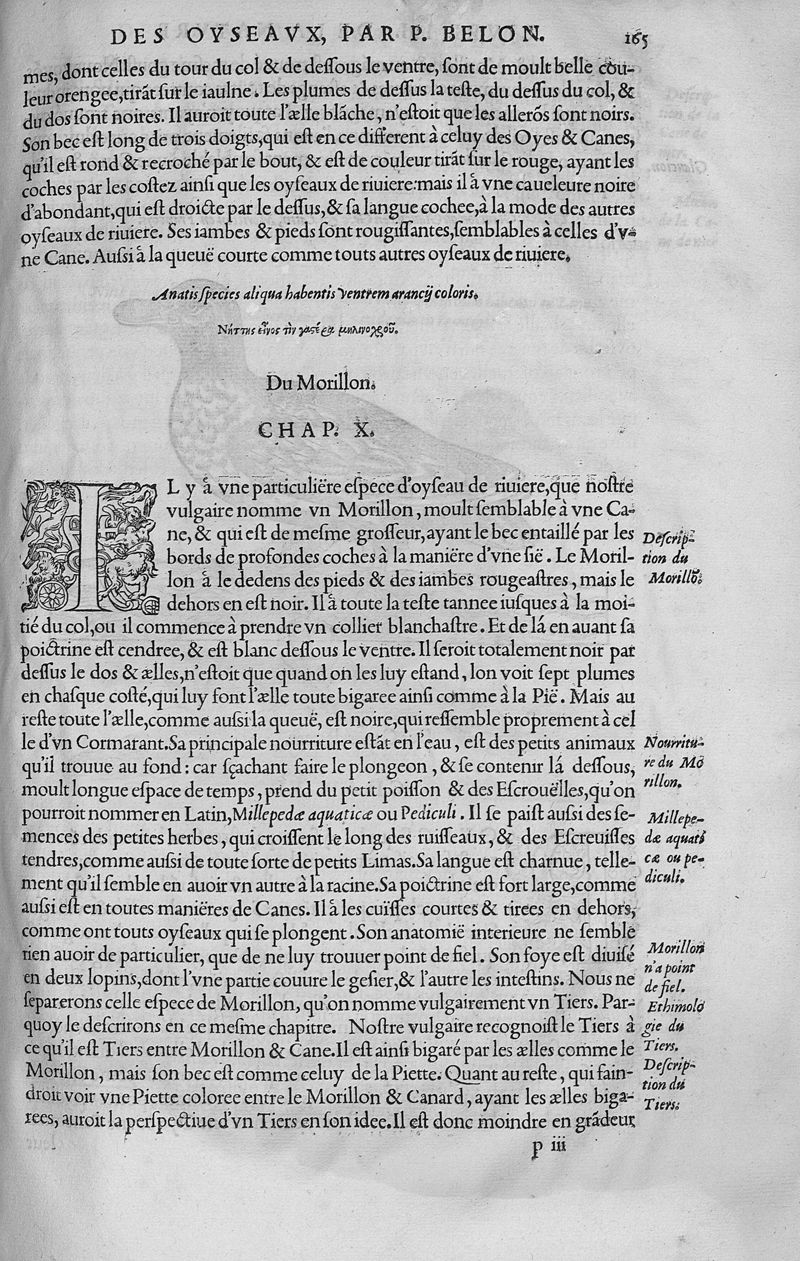 DES OYSEAVX, PAR P. BELON. 165
mes, dont celles du tour du col & de deſſous le ventre, ſont de moult belle cou-
leur orengee, tirāt ſur le iaulne. Les plumes de deſſus la teſte, du deſſus du col, &
du dos ſont noires. Il auroit toute l'ælle blāche, n'eſtoit que les allerōs ſont noirs.
Son bec eſt long de trois doigts, qui eſt en ce different à celuy des Oyes & Canes,
qu'il eſt rond & recroché par le bout, & eſt de couleur tirāt ſur le rouge, ayant les
coches par les coſtez ainſi que les oyſeaux de riuiere: mais il à vne caueleure noire
d'abondant, qui eſt droicte par le deſſus, & ſa langue cochee, à la mode des autres
oyſeaux de riuiere. Ses iambes & pieds ſont rougiſſantes, ſemblables à celles d'v-
ne Cane. Auſsi à la queuë courte comme touts autres oyſeaux de riuiere.
Anatis ſpecies aliqua habentis ventrem arancij coloris.
Du Morillon.
CHAP. X.
IL y à vne particuliëre eſpece d'oyſeau de riuiere, que noſtre
vulgaire nomme vn Morillon, moult ſemblable à vne Ca-
ne, & qui eſt de meſme groſſeur, ayant le bec entaillé par les
bords de profondes coches à la maniëre d'vne ſië. Le Moril-
lon à le dedens des pieds & des iambes rougeaſtres, mais le
dehors en eſt noir. Il à toute la teſte tannee iuſques à la moi-
tié du col, ou il commence à prendre vn collier blanchaſtre. Et de là en auant ſa
poictrine eſt cendree, & eſt blanc deſſous le ventre. Il ſeroit totalement noir par
deſſus le dos & ælles, n'eſtoit que quand on les luy eſtand, lon voit ſept plumes
en chaſque coſté, qui luy font l'ælle toute bigaree ainſi comme à la Pië. Mais au
reſte toute l'ælle, comme auſsi la queuë, eſt noire, qui reſſemble proprement à cel
le d'vn Cormarant. Sa principale nourriture eſtāt en l'eau, eſt des petits animaux
qu'il trouue au fond: car ſçachant faire le plongeon, & ſe contenir là deſſous,
moult longue eſpace de temps, prend du petit poiſſon & des Eſcrouëlles, qu'on
pourroit nommer en Latin, Millepedæ aquaticæ ou Pediculi. Il ſe paiſt auſsi des ſe-
mences des petites herbes, qui croiſſent le long des ruiſſeaux, & des Eſcreuiſſes
tendres, comme auſsi de toute ſorte de petits Limas. Sa langue eſt charnue, telle-
ment qu'il ſemble en auoir vn autre à la racine. Sa poictrine eſt fort large, comme
auſsi eſt en toutes maniëres de Canes. Il à les cuïſſes courtes & tirees en dehors,
comme ont touts oyſeaux qui ſe plongent. Son anatomië interieure ne ſemble
rien auoir de particulier, que de ne luy trouuer point de fiel. Son foye eſt diuiſé
en deux lopins, dont l'vne partie couure le geſier, & l'autre les inteſtins. Nous ne
ſeparerons celle eſpece de Morillon, qu'on nomme vulgairement vn Tiers. Par-
quoy le deſcrirons en ce meſme chapitre. Noſtre vulgaire recognoiſt le Tiers à
ce qu'il eſt Tiers entre Morillon & Cane. Il eſt ainſi bigaré par les ælles comme le
Morillon, mais ſon bec eſt comme celuy de la Piette. Quant au reſte, qui fain-
droit voir vne Piette coloree entre le Morillon & Canard, ayant les ælles biga-
rees, auroit la perſpectiue d'vn Tiers en ſon idee. Il eſt donc moindre en grādeur
p iii
Deſcrip-
tion du
Morillō.
Nourritu-
re du Mo
rillon.
Millepe-
dæ aquati
cæ ou pe-
diculi.
Morillon
n'a point
de fiel.
Ethimolo
gie du
Tiers.
Deſcrip-
tion du
Tiers.